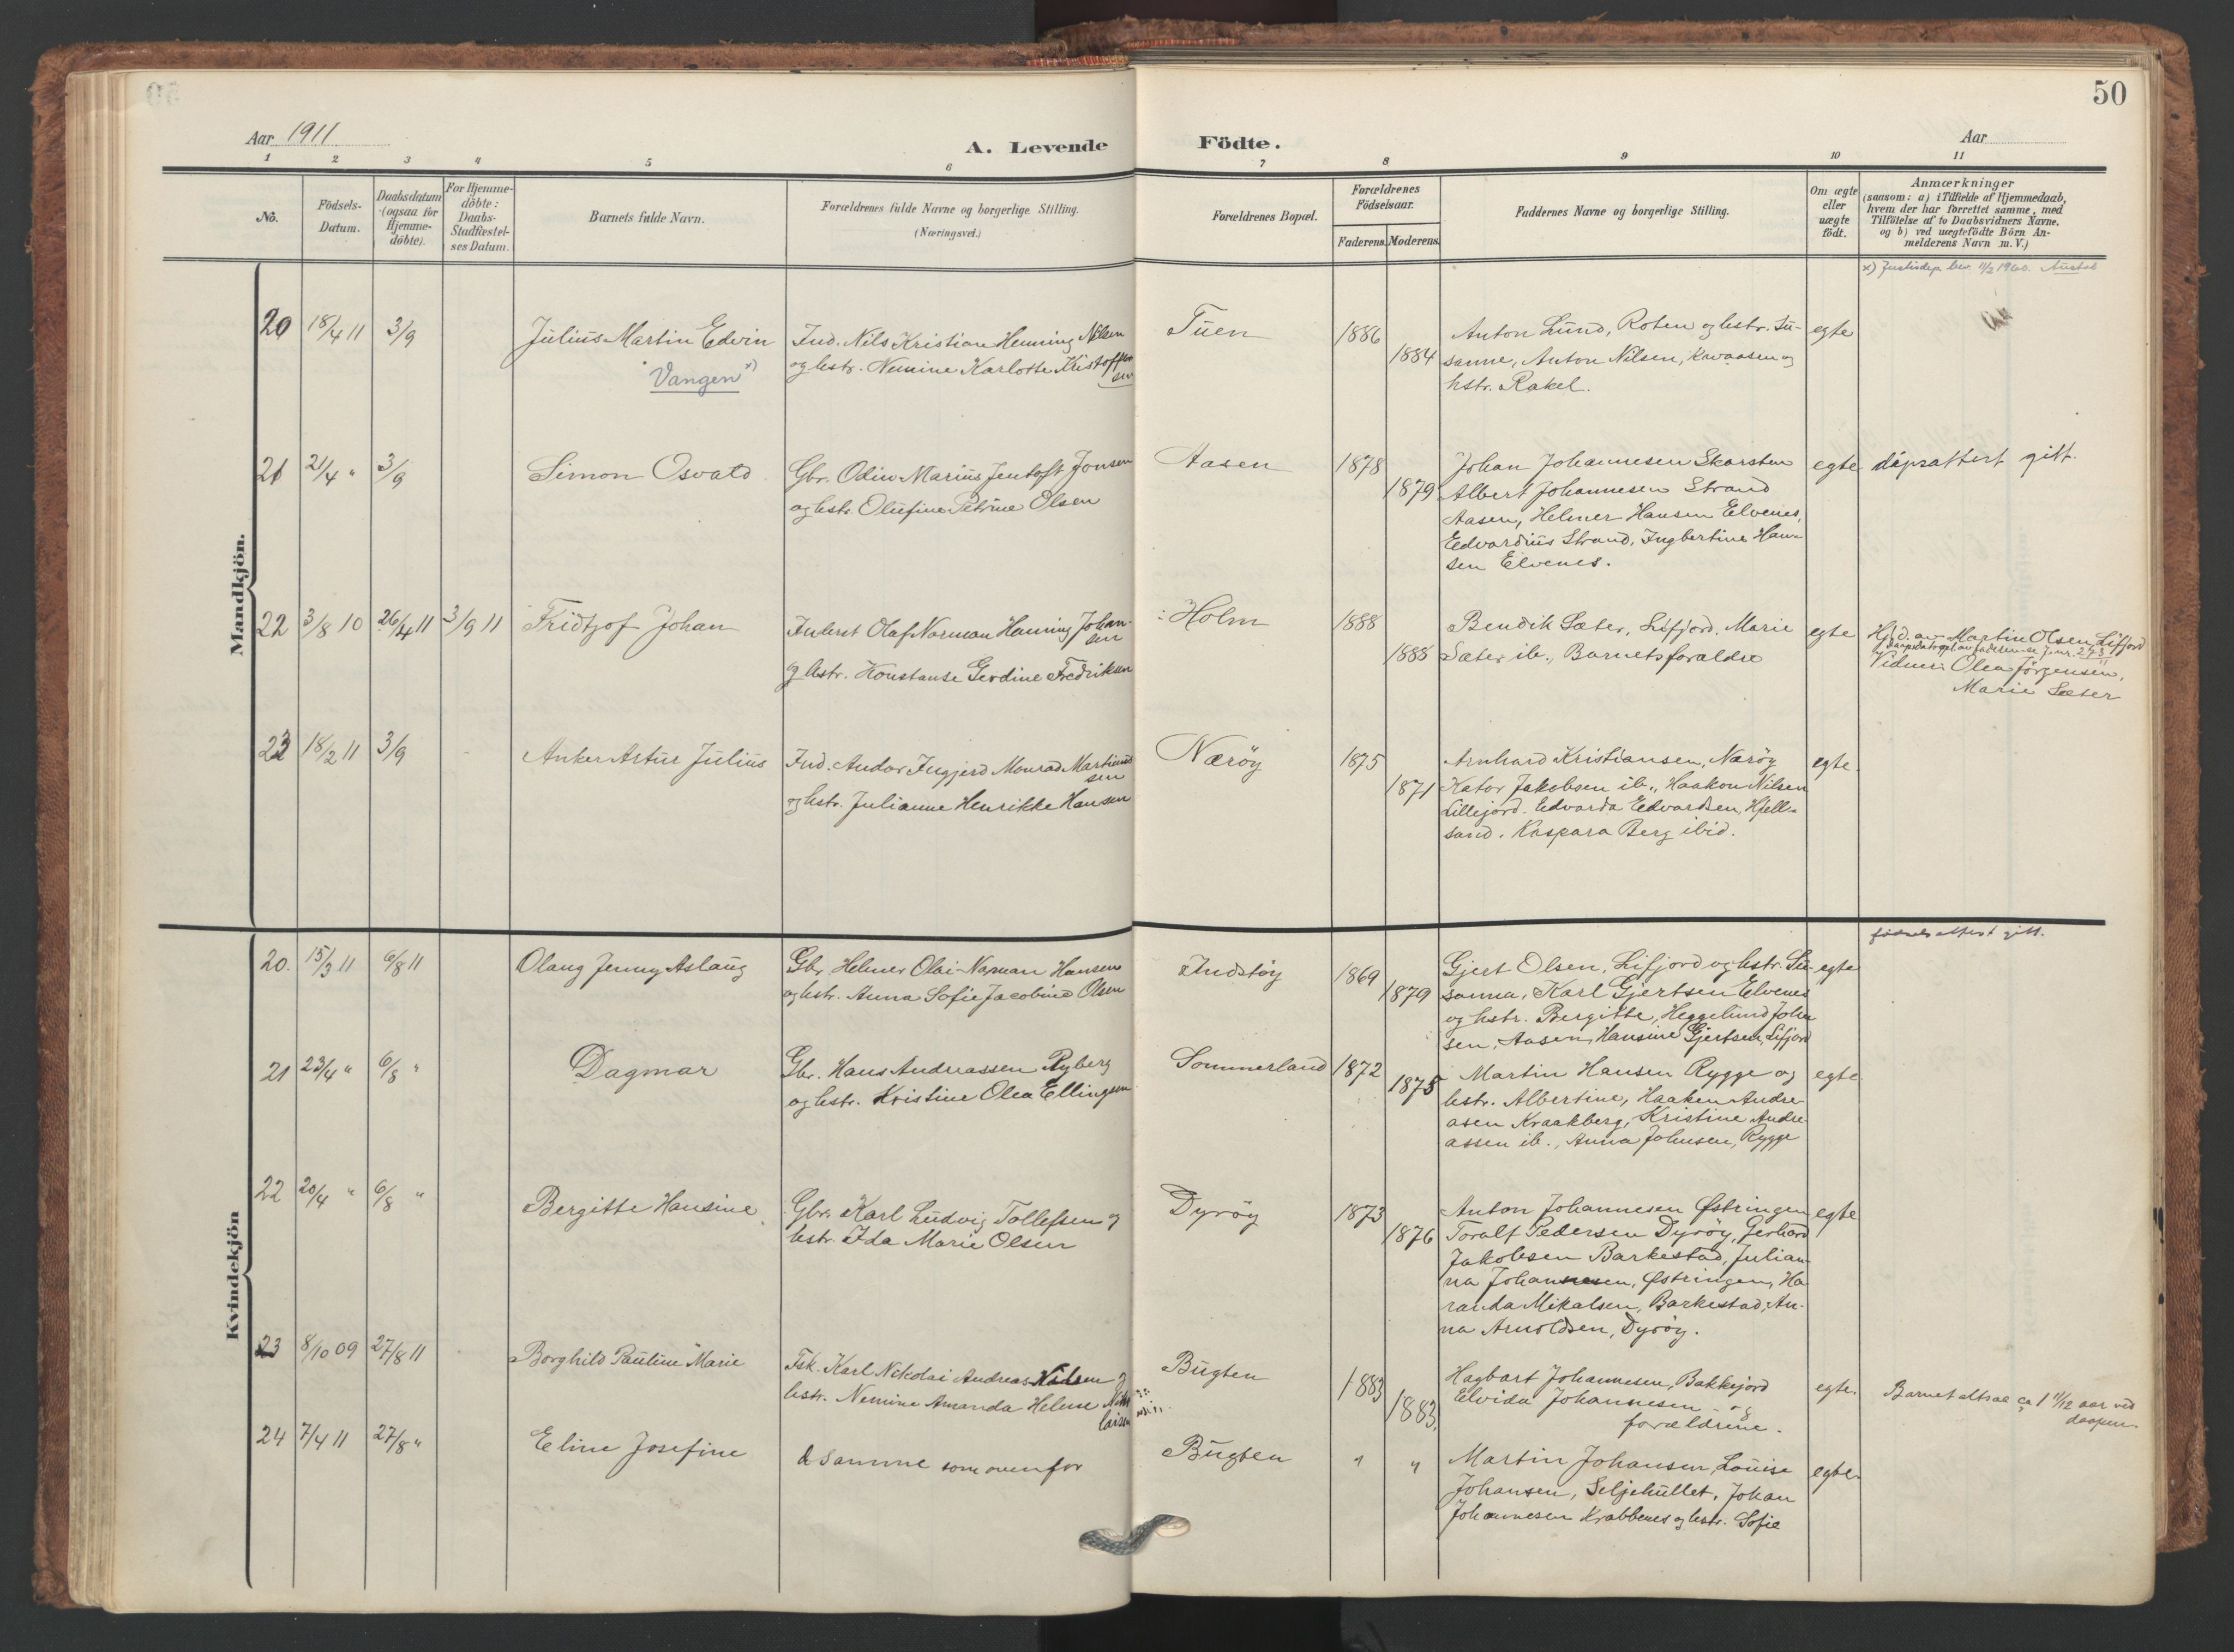 50
Aar 1911
A. Levende Födte.
Aar
1 2 3 4 5 6 7 8 9 10 11
No.
Födsels-Datum.
Daabsdatum (ogsaa for Hjemme-döbte).
For Hjemme-döbte: Daabs-Stadfæstel-ses Datum.
Barnets fulde Navn.
Forældrenes fulde Navne og borgerlige Stilling.
(Næringsvei.)
Forældrenes Bopæl.
Forældrenes Födselsaar.
Faderens. Moderens.
Faddernes Navne og borgerlige Stilling.
Om ægte eller uægte födt.
Anmærkninger
(saasom: a) i Tilfælde af Hjemmedaab,
hvem der har forrettet samme, med
Tilföielse af to Daabsvidners Navne.
og b) ved uægtefödte Börn An-
melderens Navn m.V.)
x) Justisdep. bev. 11/2 1960.
Mandkjön.
20 18/4 11 3/9 Julius Martin Edvin
Vangen x)
Ind. Nils Kristian Henning Nilsen
og hstr. Nemine Karlotte Kristoffer
sen
Tuen 1886 1884
Anton Lund, Roten og hstr. Su-
sanne, Anton Nilsen, Kavaasen og
hstr. Rakel.
egte
21 21/4 " 3/9 Simon Osvald
Gbr. Odin Marius Jentoft Jonsen
og hstr. Olufine Petrine Olsen
Aasen 1878 1879
Johan Johannesen Skarsten
Albert Johannesen Strand
Aasen, Helmer Hansen Elvenes,
Edvardius Strand, Ingbertine Han-
sen Elvenes.
egte dåpsattest gitt.
22 3/8 10 26/4 11 3/9 11 Fridtjof Johan
Inderst Olaf Norman Henning Johan-
sen
og hstr. Konstanse Gerdine Fredriksen
Holm 1888 1888
Bendik Sæter, Lifjord, Marie
Sæter ib., Barnets foraldre
egte Hj.d. av Martin Olsen Lifjord
Vidner: Olea Jörgensen,
Marie Sæter
23 18/2 11 3/9 Anker Artur Julius
Ind. Andor Ingjerd Monrad Martinus
sen
og hstr. Julianne Henrikke Hansen
Nærøy 1875 1871
Arnhard Kristiansen, Nærøy
Kator Jakobsen ib., Haakon Nilsen
Lillejord. Edvarda Edvardsen, Hjell-
sand. Kaspara Berg ibid.
egte.
Kvindekjön
20. 15/3 11 6/8 11 Olaug Jenny Aslaug
Gbr. Helmer Olai Norman Hansen
og hstr. Anna Sofie Jacobine Olsen
Indstøy 1869 1879
Gjert Olsen, Lifjord og hstr. Su-
sanna, Karl Gjertsen Elvenes
og hstr. Bergitte, Heggelund John
sen, Aasen, Hansine Gjertsen, Lifjord
egte fødselsattest gitt.
21 23/4 " 6/8 " Dagmar
Gbr. Hans Andreassen Ryberg
og hstr. Kristine Olea Ellingsen
Sommerland 1872 1875
Martin Hansen Rygge og
hstr. Albertine, Haaken Andre-
asen Kraakberg, Kristine Andre
assen ib., Anna Johnsen, Rygge
egte
22 20/4 " 6/8 " Bergitte Hansine
Gbr. Karl Ludvig Tollefsen og
hstr. Ida Marie Olsen
Dyrøy 1873 1876
Anton Johannesen Østringen
Toralf Pedersen Dyrøy, Gerhard
Jakobsen Barkestad, Julian-
na Johannesen, Østringen, Ha
randa Mikalsen, Barkestad, An-
na Arnoldsen, Dyrøy.
egte
23 8/10 09 27/8 11 Borghild Pauline Marie
Fsk. Karl Nikolai Andreas Nilsen og
hstr. Nemine Amanda Helene Niko
laisen
Bugten 1883 1883,
Hagbart Johannesen, Bakkejord
Elvida Johannesen og
forældrene.
egte. Barnet altsaa ca 1 11/12 aar ved
daapen.
24 7/4 11 27/8 " Eline Josefine
de samme som ovenfor
Bugten " "
Martin Johansen, Louise
Johansen, Seljehullet, Johan
Johannesen Krabbenes og hstr. Sofie
egte.